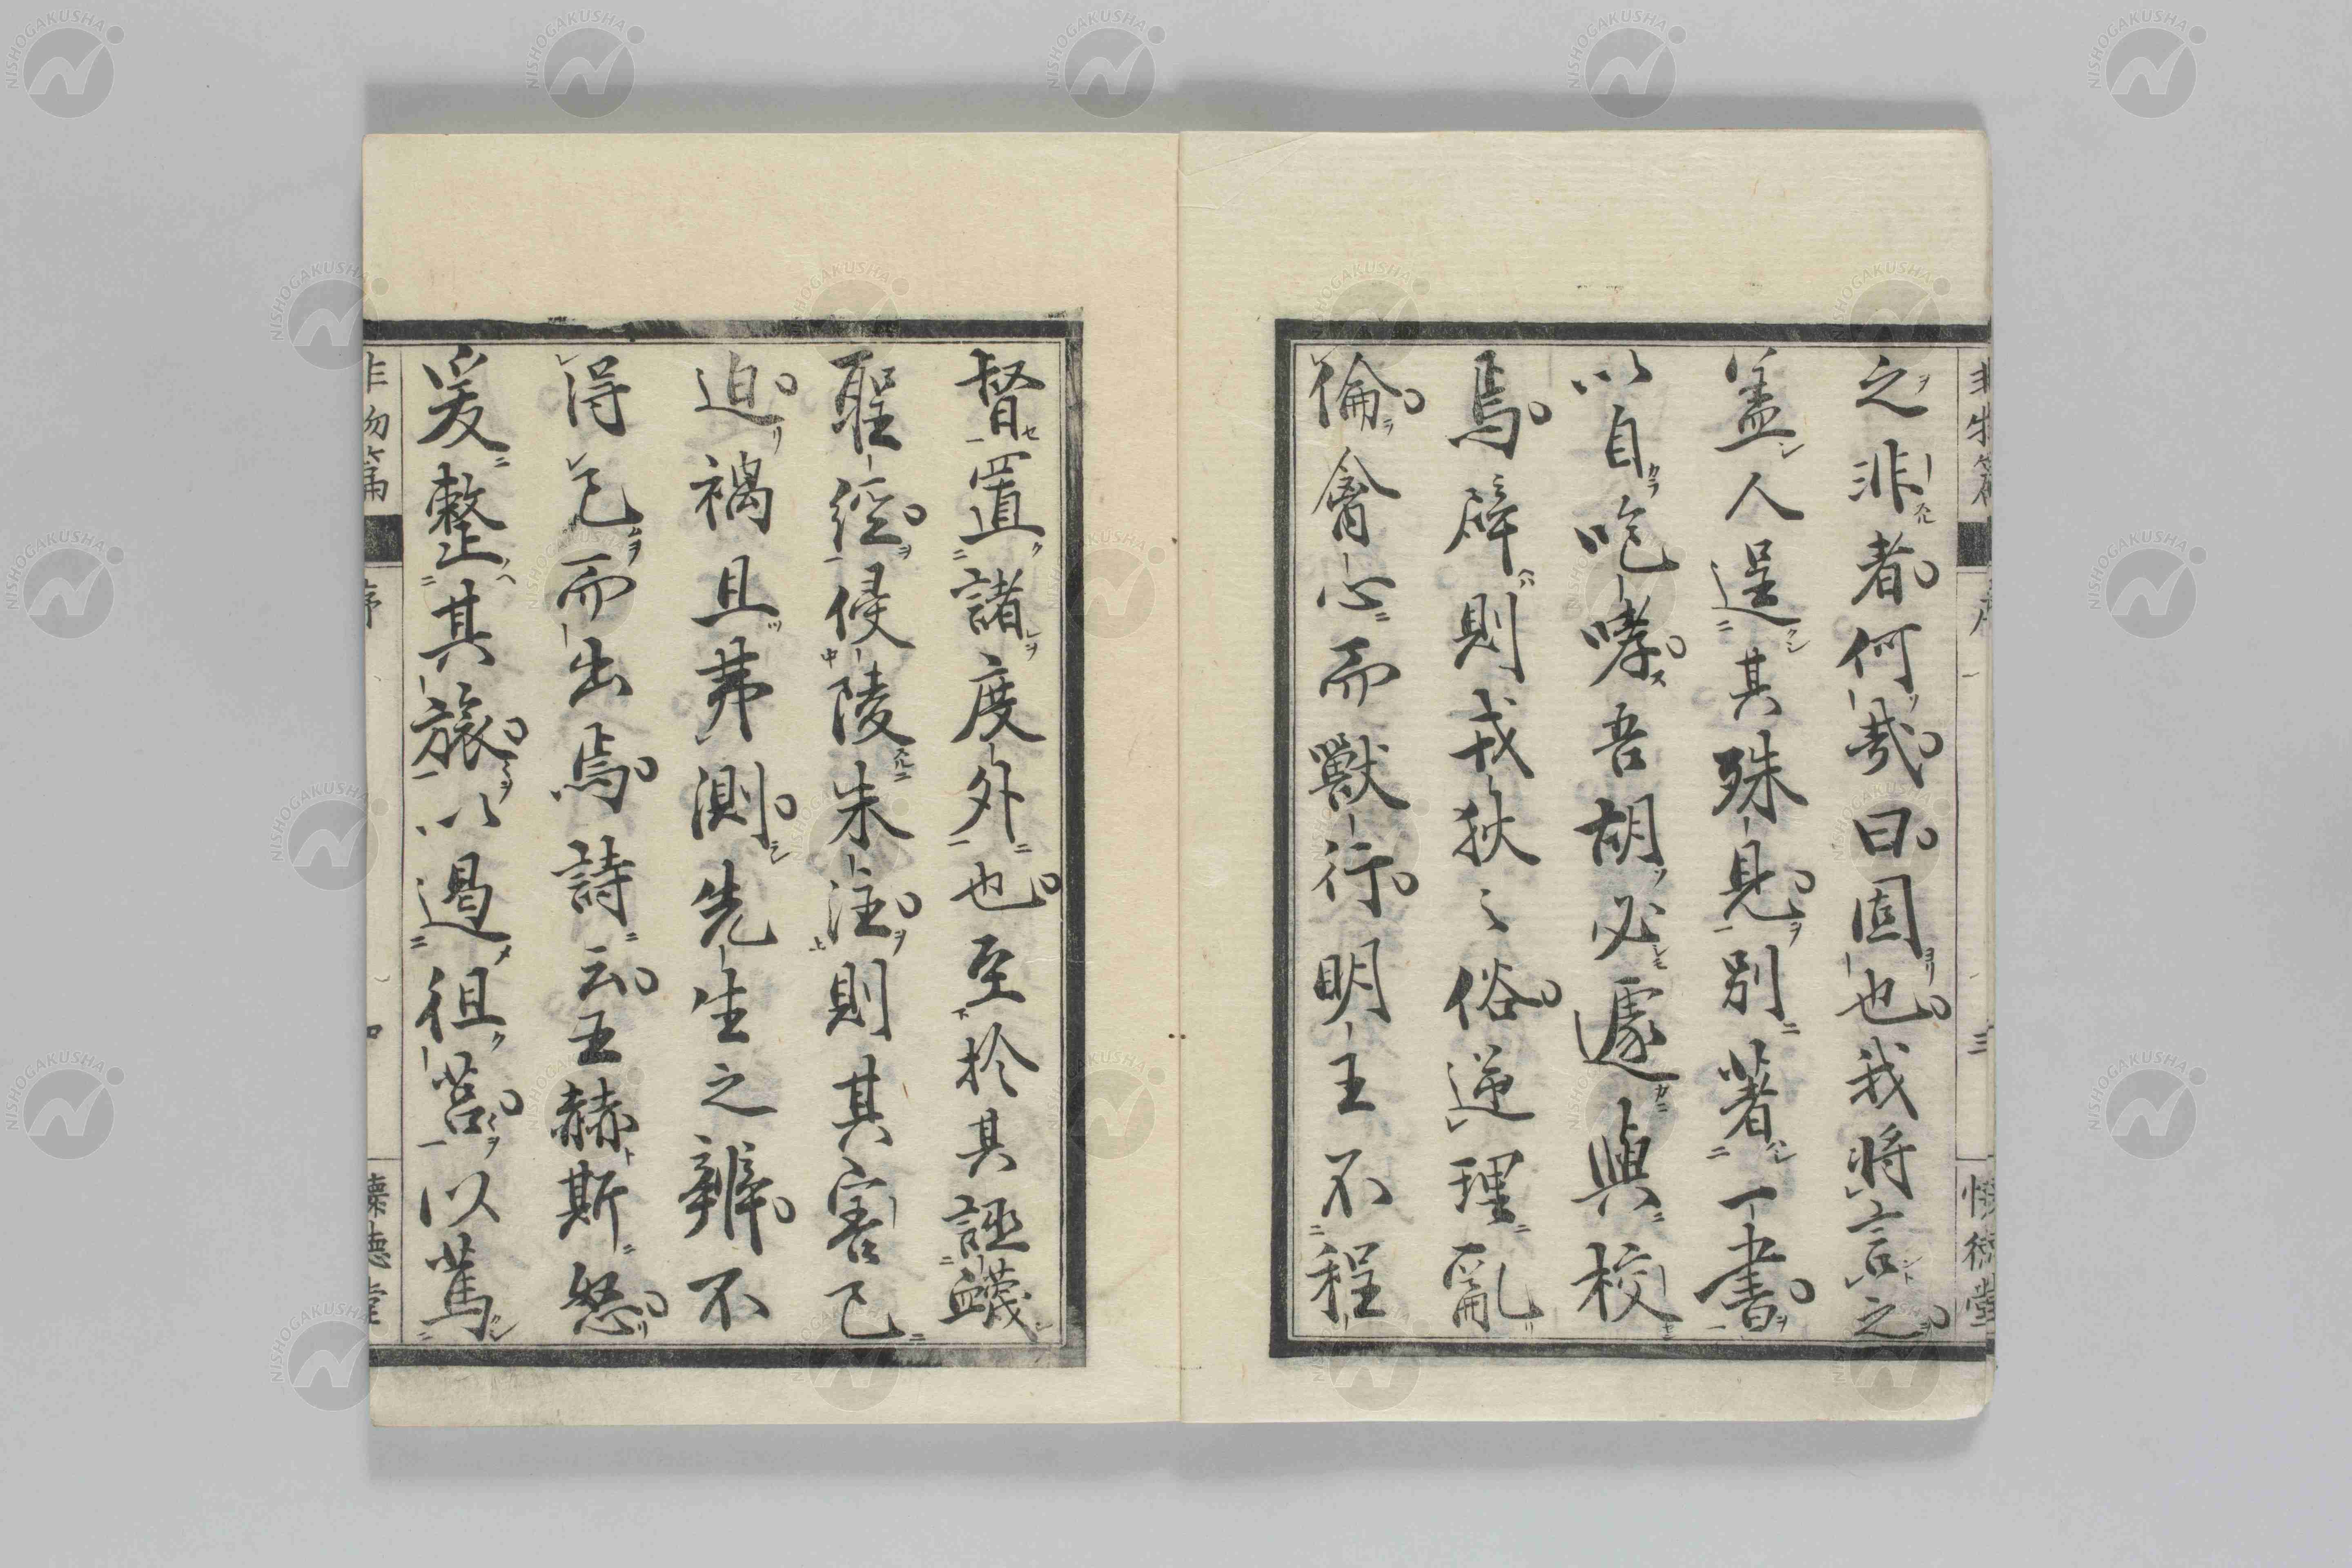 之非者何哉曰固也我將言之
盖人逞其殊見別著一書
以自咆哮吾胡必遽與校
焉辟則戎狄之俗逆理亂
倫禽心而獸行明王不程
督置諸度外也至於其誣衊
聖經侵陵朱注則其害已
迫禍且弗測先生之辨不
得已而出焉詩云王赫斯怒
爰整其旅以遏徂莒以篤
非物篇
序
三
懷德堂
非物篇
序
四
懷德堂
NISHOGAKUSHA